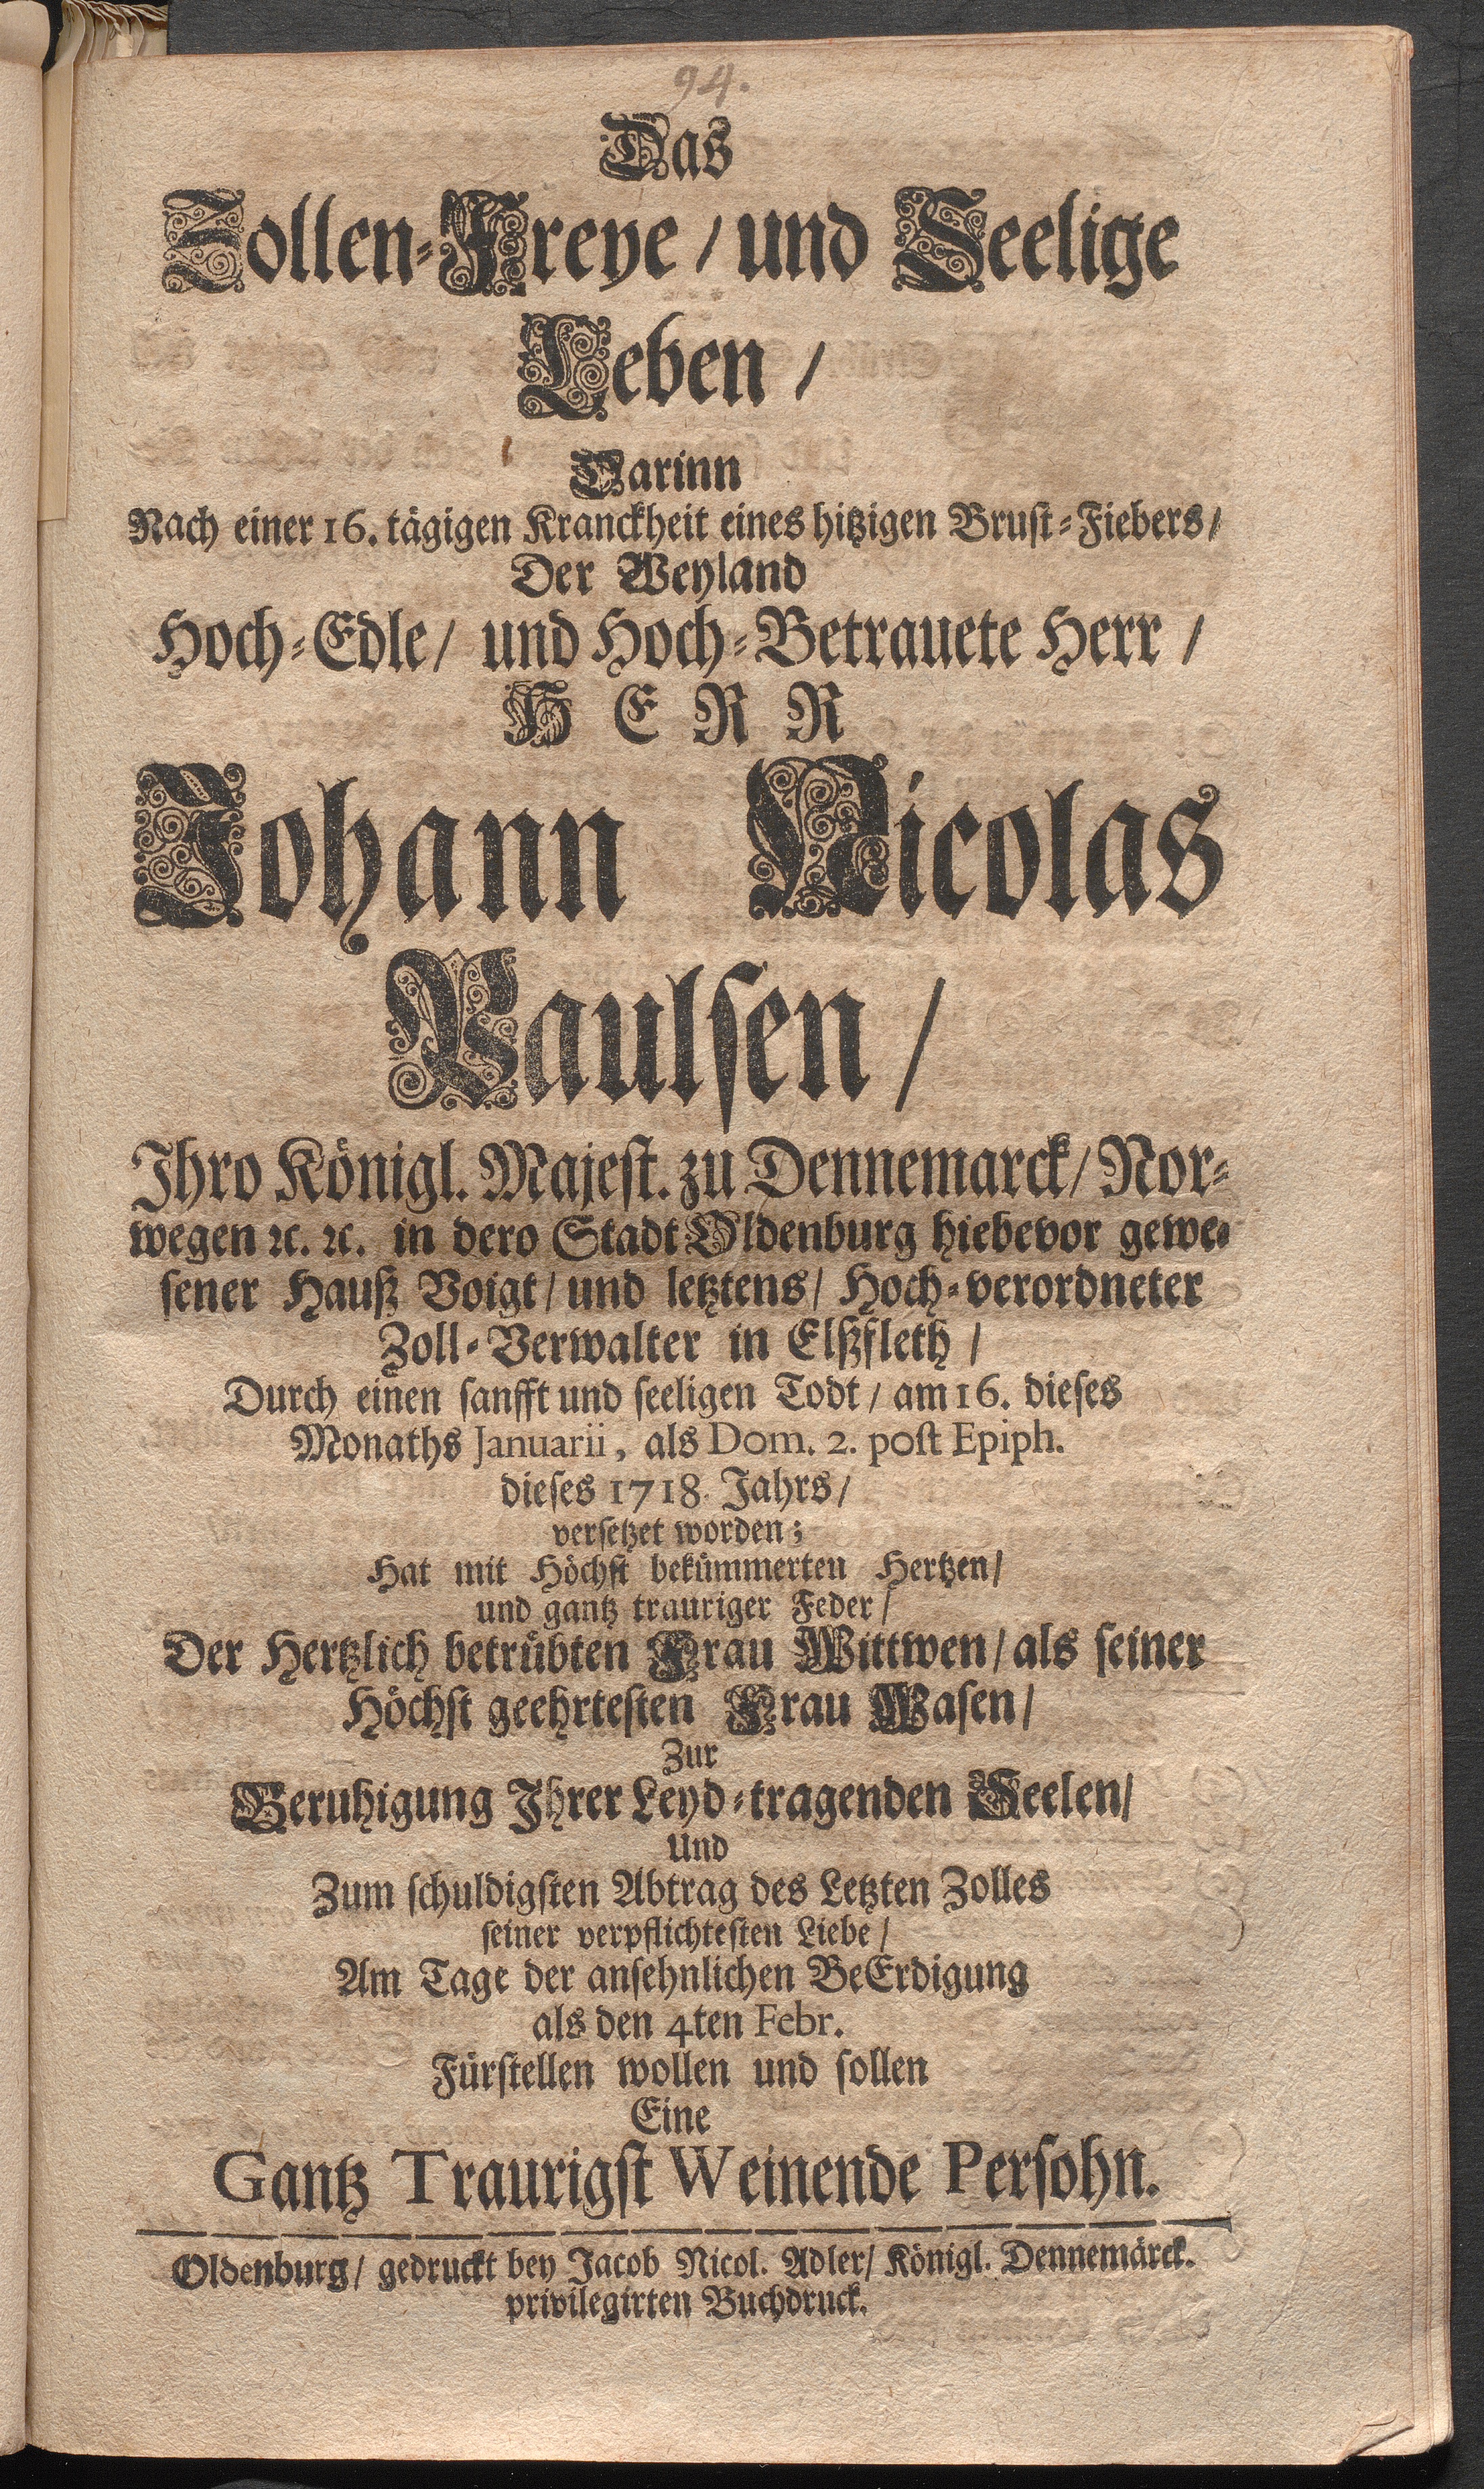 94.
Das
Zollen-Freye / und Seelige
Leben /
Darinn
Nach einer 16. tägigen Kranckheit eines hitzigen Brust-Fiebers /
Der Weyland
Hoch-Edle / und Hoch-Betrauete Herr /
HERR
Johann Nicolas
Paulsen /
Ihro Königl. Majest. zu Dennemarck / Nor-
wegen ꝛc. ꝛc. in dero Stadt Oldenburg hiebevor gewe-
sener Hauß Voigt / und letztens / Hoch-verordneter
Zoll-Verwalter in Elßfleth /
Durch einen sanfft und seeligen Todt / am 16. dieses
Monaths Januarii, als Dom. 2. post Epiph.
dieses 1718. Jahrs /
versetzet worden;
Hat mit Höchst bekümmerten Hertzen /
und gantz trauriger Feder /
Der Hertzlich betrübten Frau Wittwen / als seiner
Höchst geehrtesten Frau Wasen /
Zur
Beruhigung Ihrer Leyd-tragenden Seelen /
Und
Zum schuldigsten Abtrag des Letzten Zolles
seiner verpflichtesten Liebe /
Am Tage der ansehnlichen BeErdigung
als den 4ten Febr.
Fürstellen wollen und sollen
Eine
Gantz Traurigst Weinende Persohn.
Oldenburg / gedruckt bey Jacob Nicol. Adler / Königl. Dennemärck.
privilegirten Buchdruck.